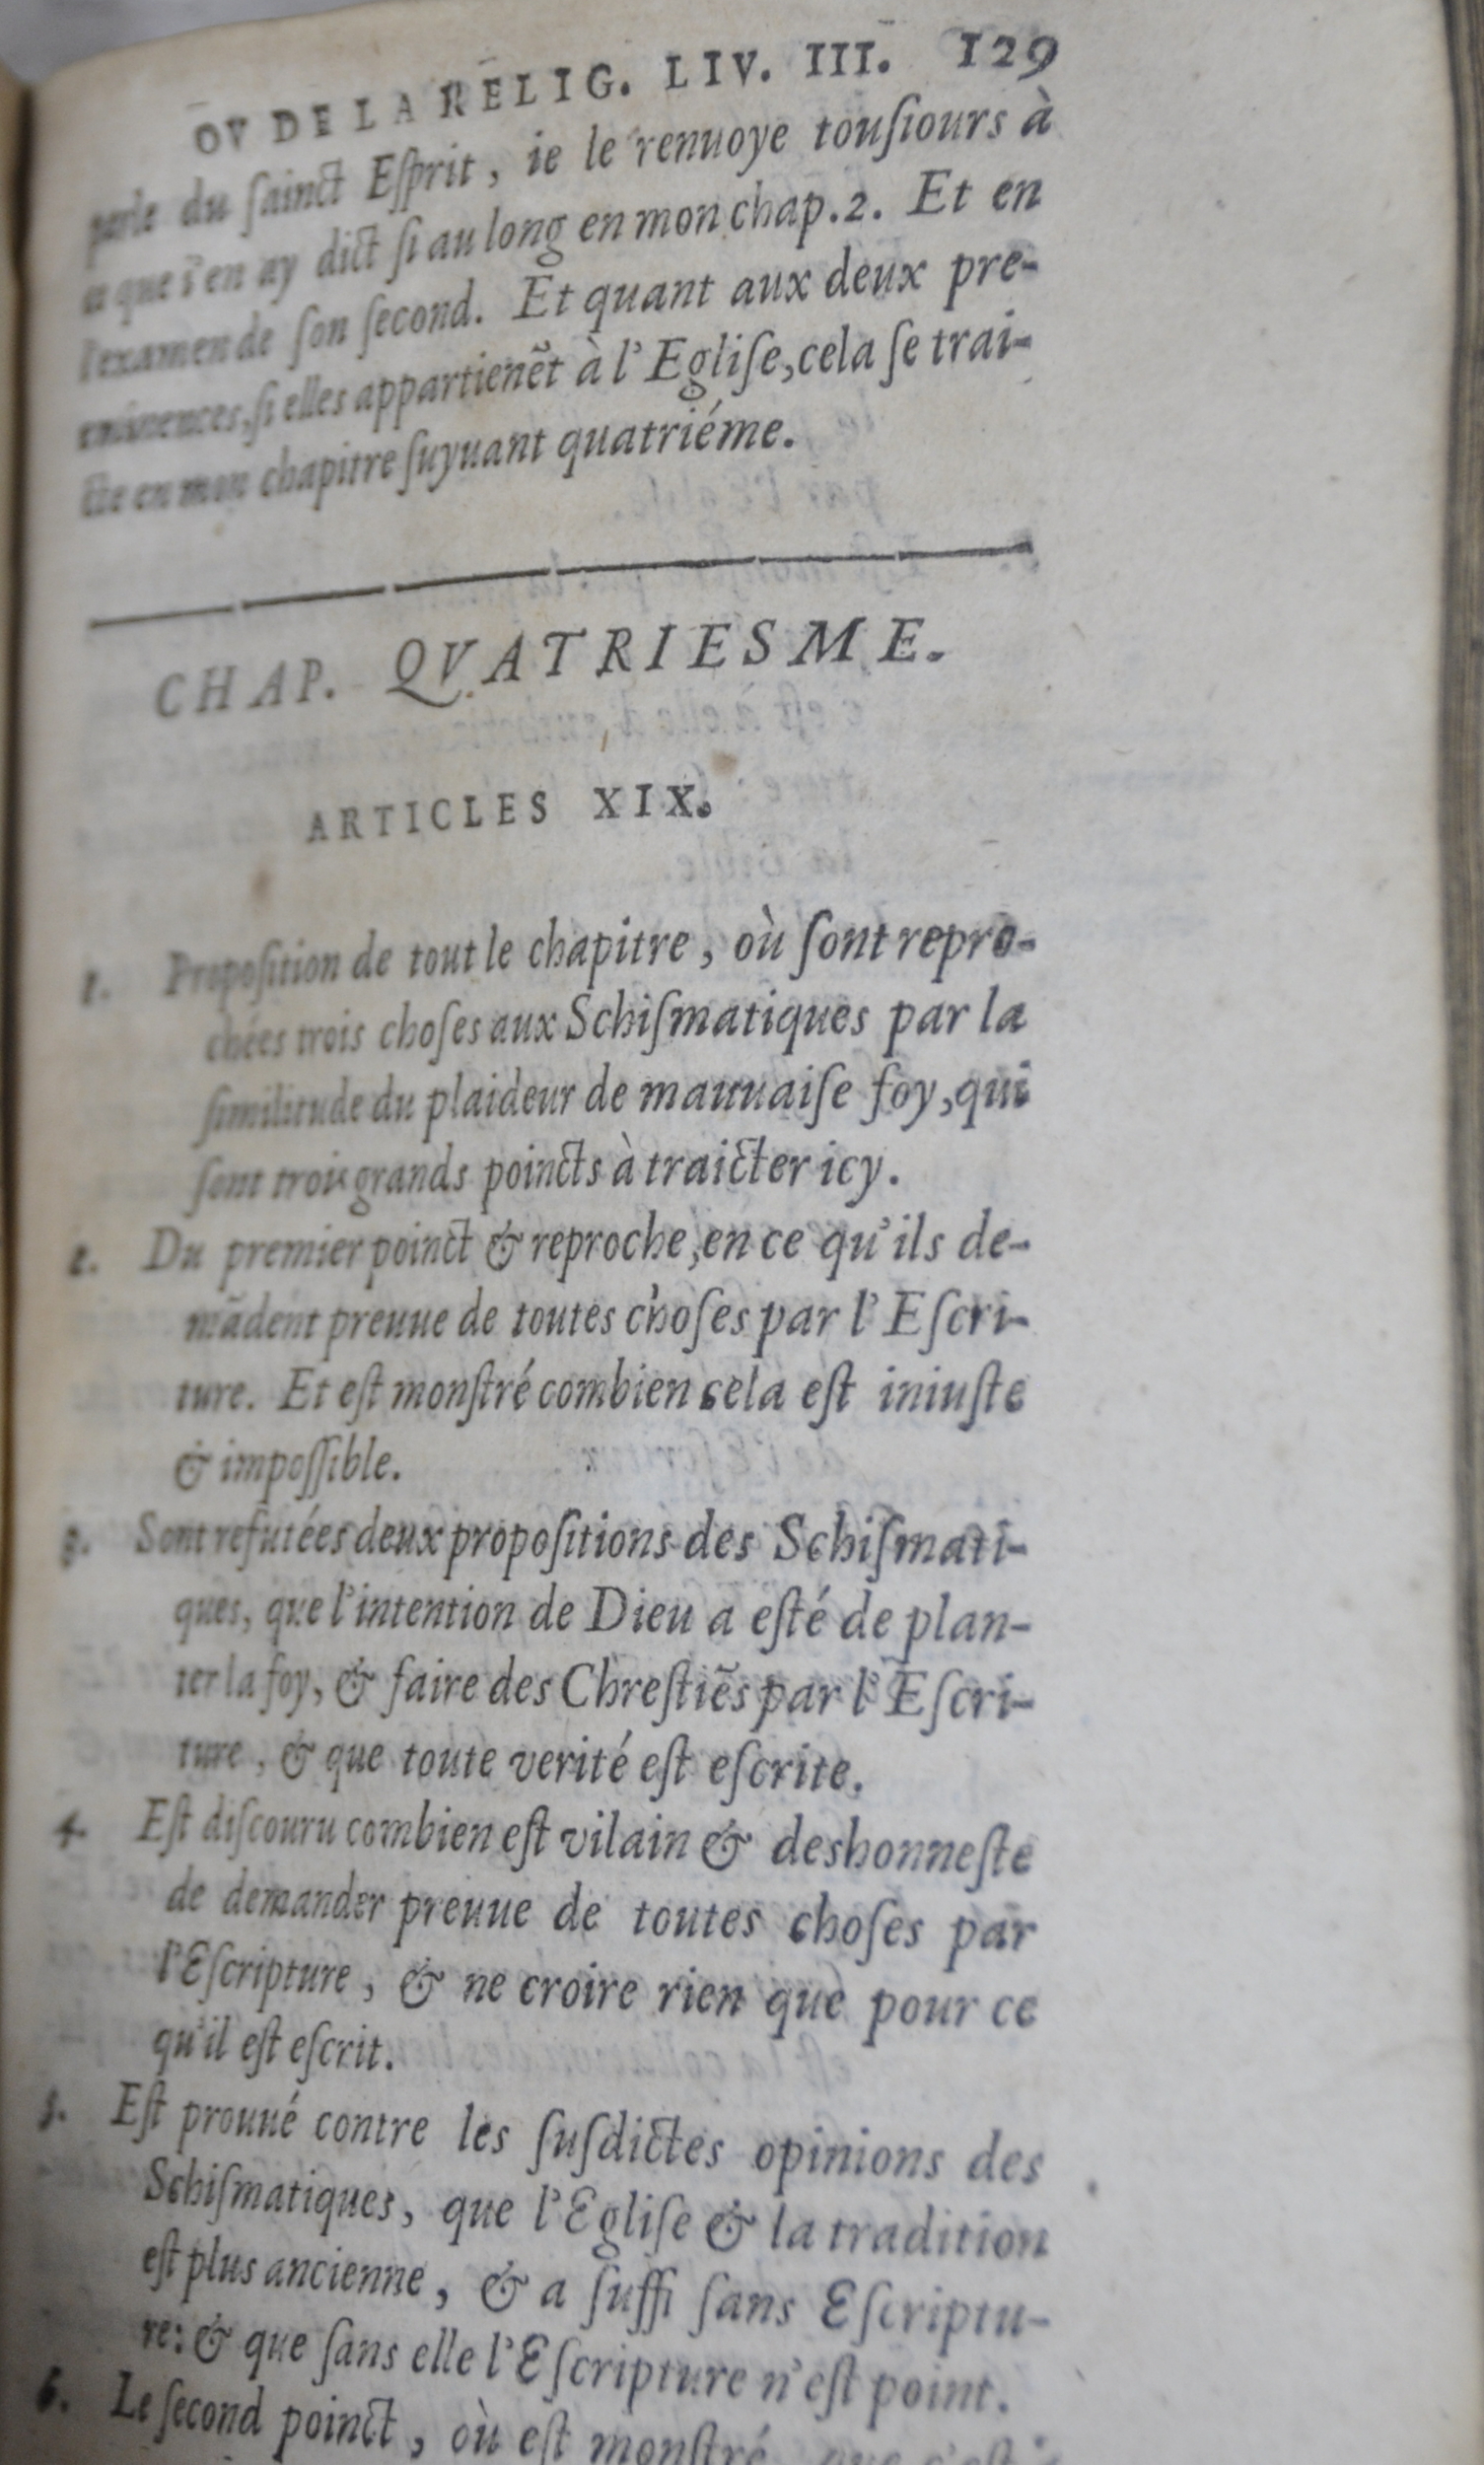 OV DE LA RELIG. LIV. III. 129
parle du ſainct Eſprit, ie le renuoye touſiours à
ce que i'en ay dict ſi au long en mon chap.2. Et en
l'examen de ſon ſecond. Et quant aux deux pre-
eminences, ſi elles appartienẽt à l'Egliſe, cela ſe trai-
cte en mon chapitre ſuyuant quatriéme.
CHAP. QVATRIESME.
ARTICLES XIX.
1. Propoſition de tout le chapitre, où ſont repro-
chées trois choſes aux Schiſmatiques par la
ſimilitude du plaideur de mauuaiſe foy, qui
ſont trois grands poincts à traicter icy.
2. Du premier poinct & reproche, en ce qu'ils de-
mãdent preuue de toutes choſes par l'Eſcri-
ture. Et eſt monſtré combien cela eſt iniuſte
& impoſſible.
3. Sont refutées deux propoſitions des Schiſmati-
ques, que l'intention de Dieu a eſté de plan-
ter la foy, & faire des Chreſtiẽs par l'Eſcri-
ture, & que toute verité eſt eſcrite.
4. Eſt diſcouru combien eſt vilain & deshonneſte
de demander preuue de toutes choſes par
l'Eſcripture, & ne croire rien que pour ce
qu'il eſt eſcrit.
5. Eſt prouué contre les ſuſdictes opinions des
Schiſmatiques, que l'Egliſe & la tradition
eſt plus ancienne, & a ſuffi ſans Eſcriptu-
re: & que ſans elle l'Eſcripture n'eſt point.
6. Le ſecond poinct, où eſt monſtré que c'eſt